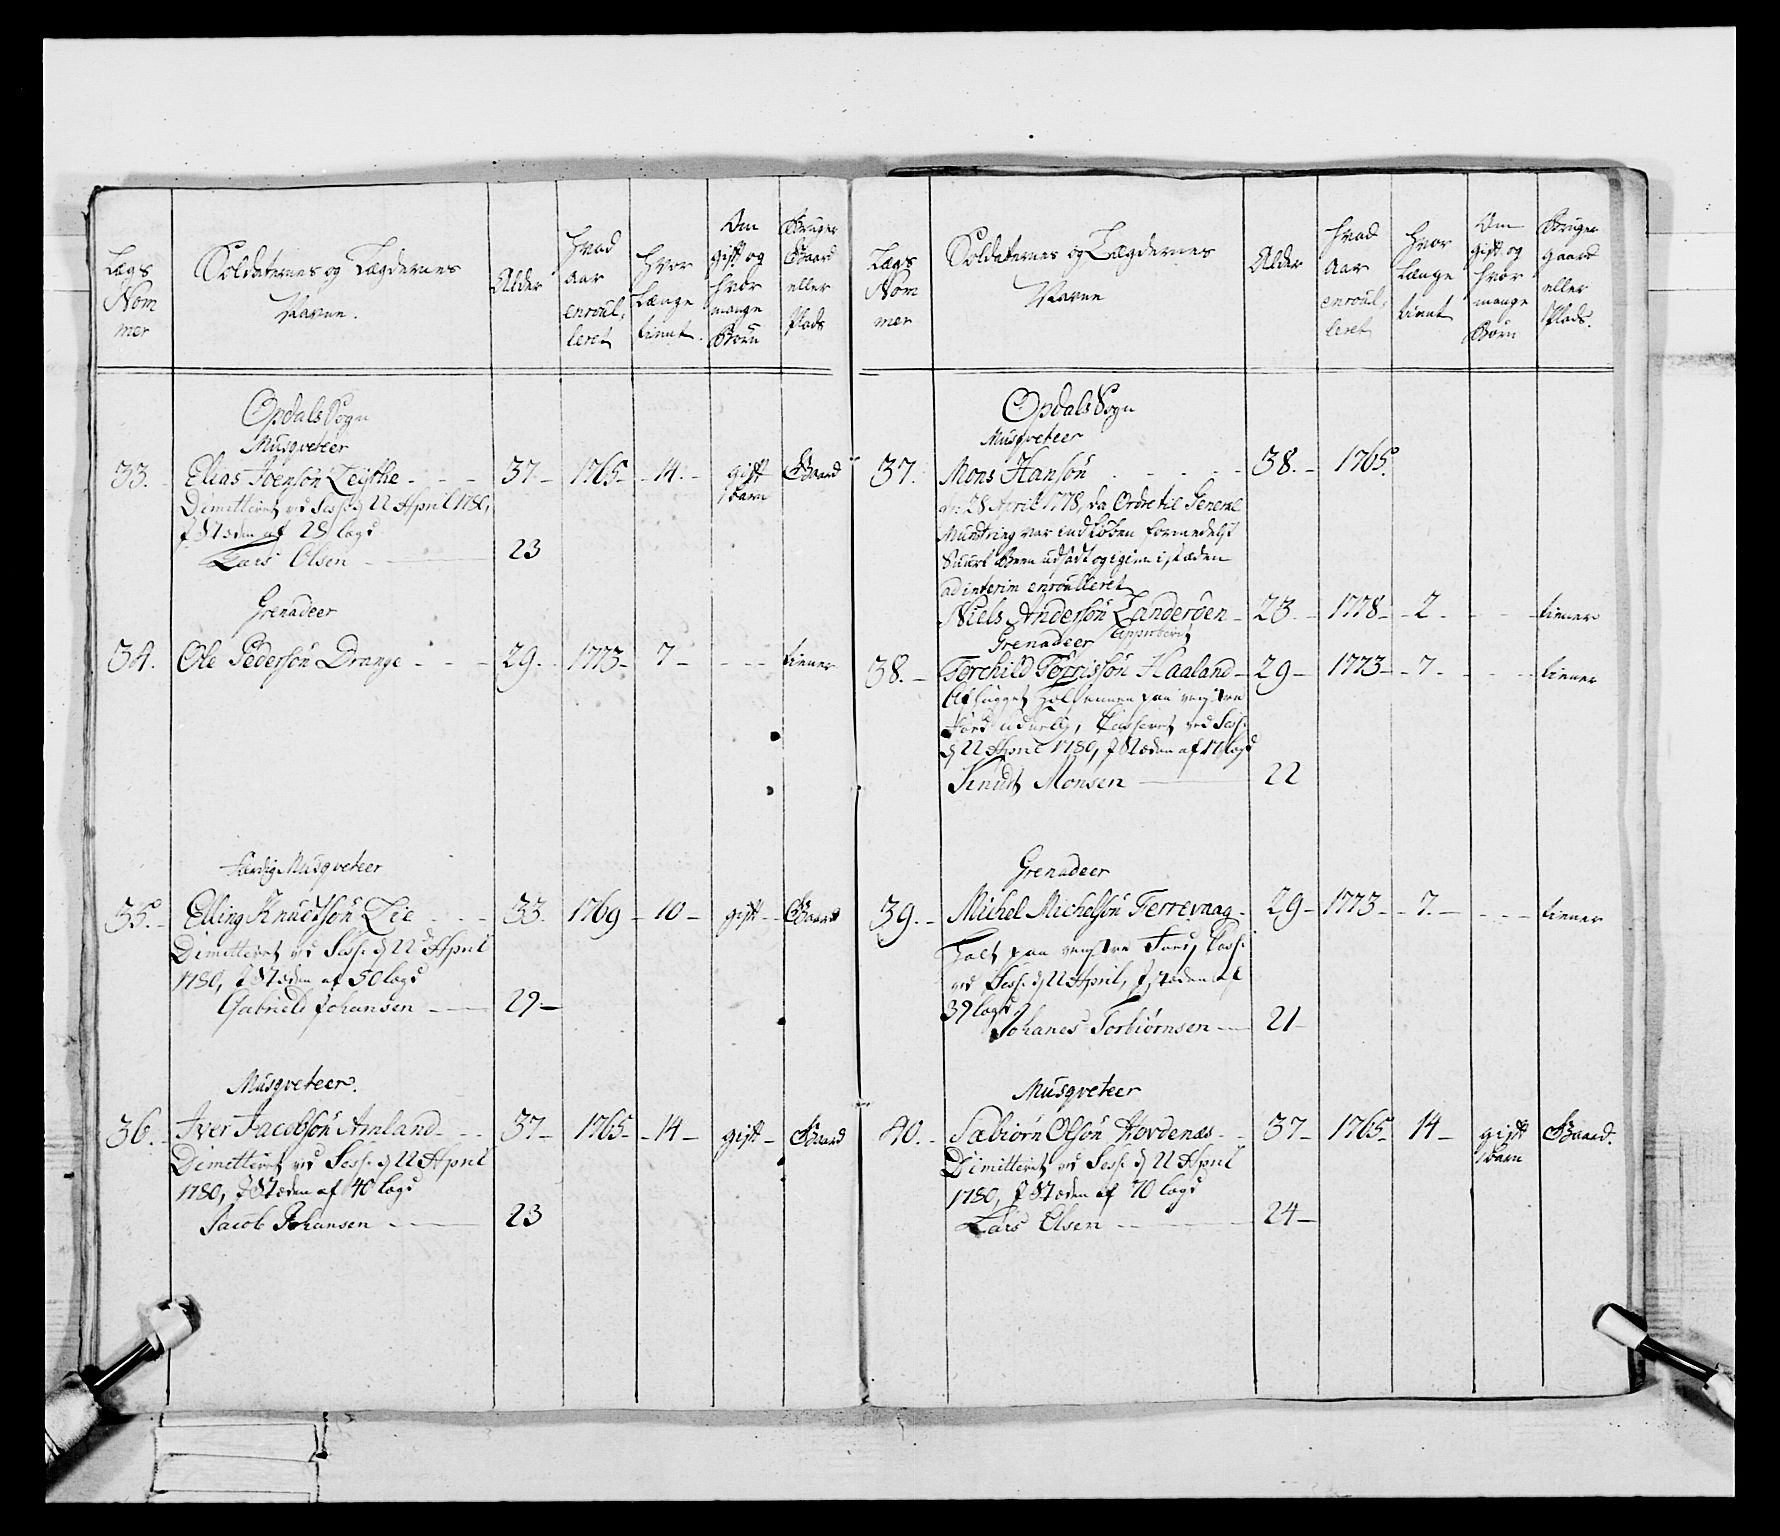 Lægs
Nom
mer
Soldaternes og Lægdernes
Navne.
Alder
Hvad
aar
enroul,
leret
Hvor
Længe
tient.
Om
gift og
hvor
mange
Børn
Bruger
Gaard
eller
Plads
Opdals Sogn
Musqveteer
33. Elias Joensøn Teigthe - - - 37 - 1765 - 14 - gift Gaard
1 barn
Dimitteret ved Sess: d 22 April 1780,
J Stæden af 28 lægd
Lars Olsen - 23
Grenadeer
34. Ole Pedersøn Drange - - - 29. 1773 - 7 - - - - tiener
færdig Musqveteer
35. Elling Knudsøn Lie - - - 33. 1769 - 10 - gift - Gaard
Dimitteret ved Sess: d 22 April
1780, J Stæden af 50 lægd
Gabriel Johansen - 29 -
Musqveteer.
36. Iver Jacobsøn Amland - - - 37 - 1765 - 14 - gift - Gaard
Dimitteret ved Sess: d 22 April
1780, J Stæden af 40 lægd
Jacob Johansen - 23
Lægs
Nom
mer
Soldaternes og Lægdernes
Navne
Alder
Hvad
aar
enroul,
leret
Hvor
Længe
tient
Om
gift og
hvor
mange
Børn
Bruger
gaard
eller
Plads.
Opdals Sogn
Musqveteer
37. Mons Hansøn - - - 38. - 1765.
den 28 April 1778, da Ordre til General
Mundring var indløben formedelst
Skuurt Been udsadt og igien i stæden
ad interim enroulleret
Niels Andersøn Landerøen - 23. - 1778 - 2 - - - tiener
Grenadeer
38. Torchild Torrissøn Haaland - 29 - 1773 - 7 - - - tiener
Afhugget Hælsennen paa venstre
Foed uduelig, Casseret ved Sess:
d 22 April 1780, J Stæden af 17 lægd
Knudt Monsen - 22
Grenadeer
39. - Michel Michelsøn Terrevnag - 29 - 1773 - 7. - - - tiener
Halt paa venstre Foed, Cass:
ved Sess: d 22 April, J stæden af
39 lægd
Johanes Torbiørnsen - 21
Musqveteer
40. - Sæbiørn Olsøn Hovdenæs - 37 - 1765 - 14 - gift Gaard.
1 barn
Dimitteret ved Sess: d 22 April
1780, J Stæden af 70 lægd
Lars Olsen - 24 -